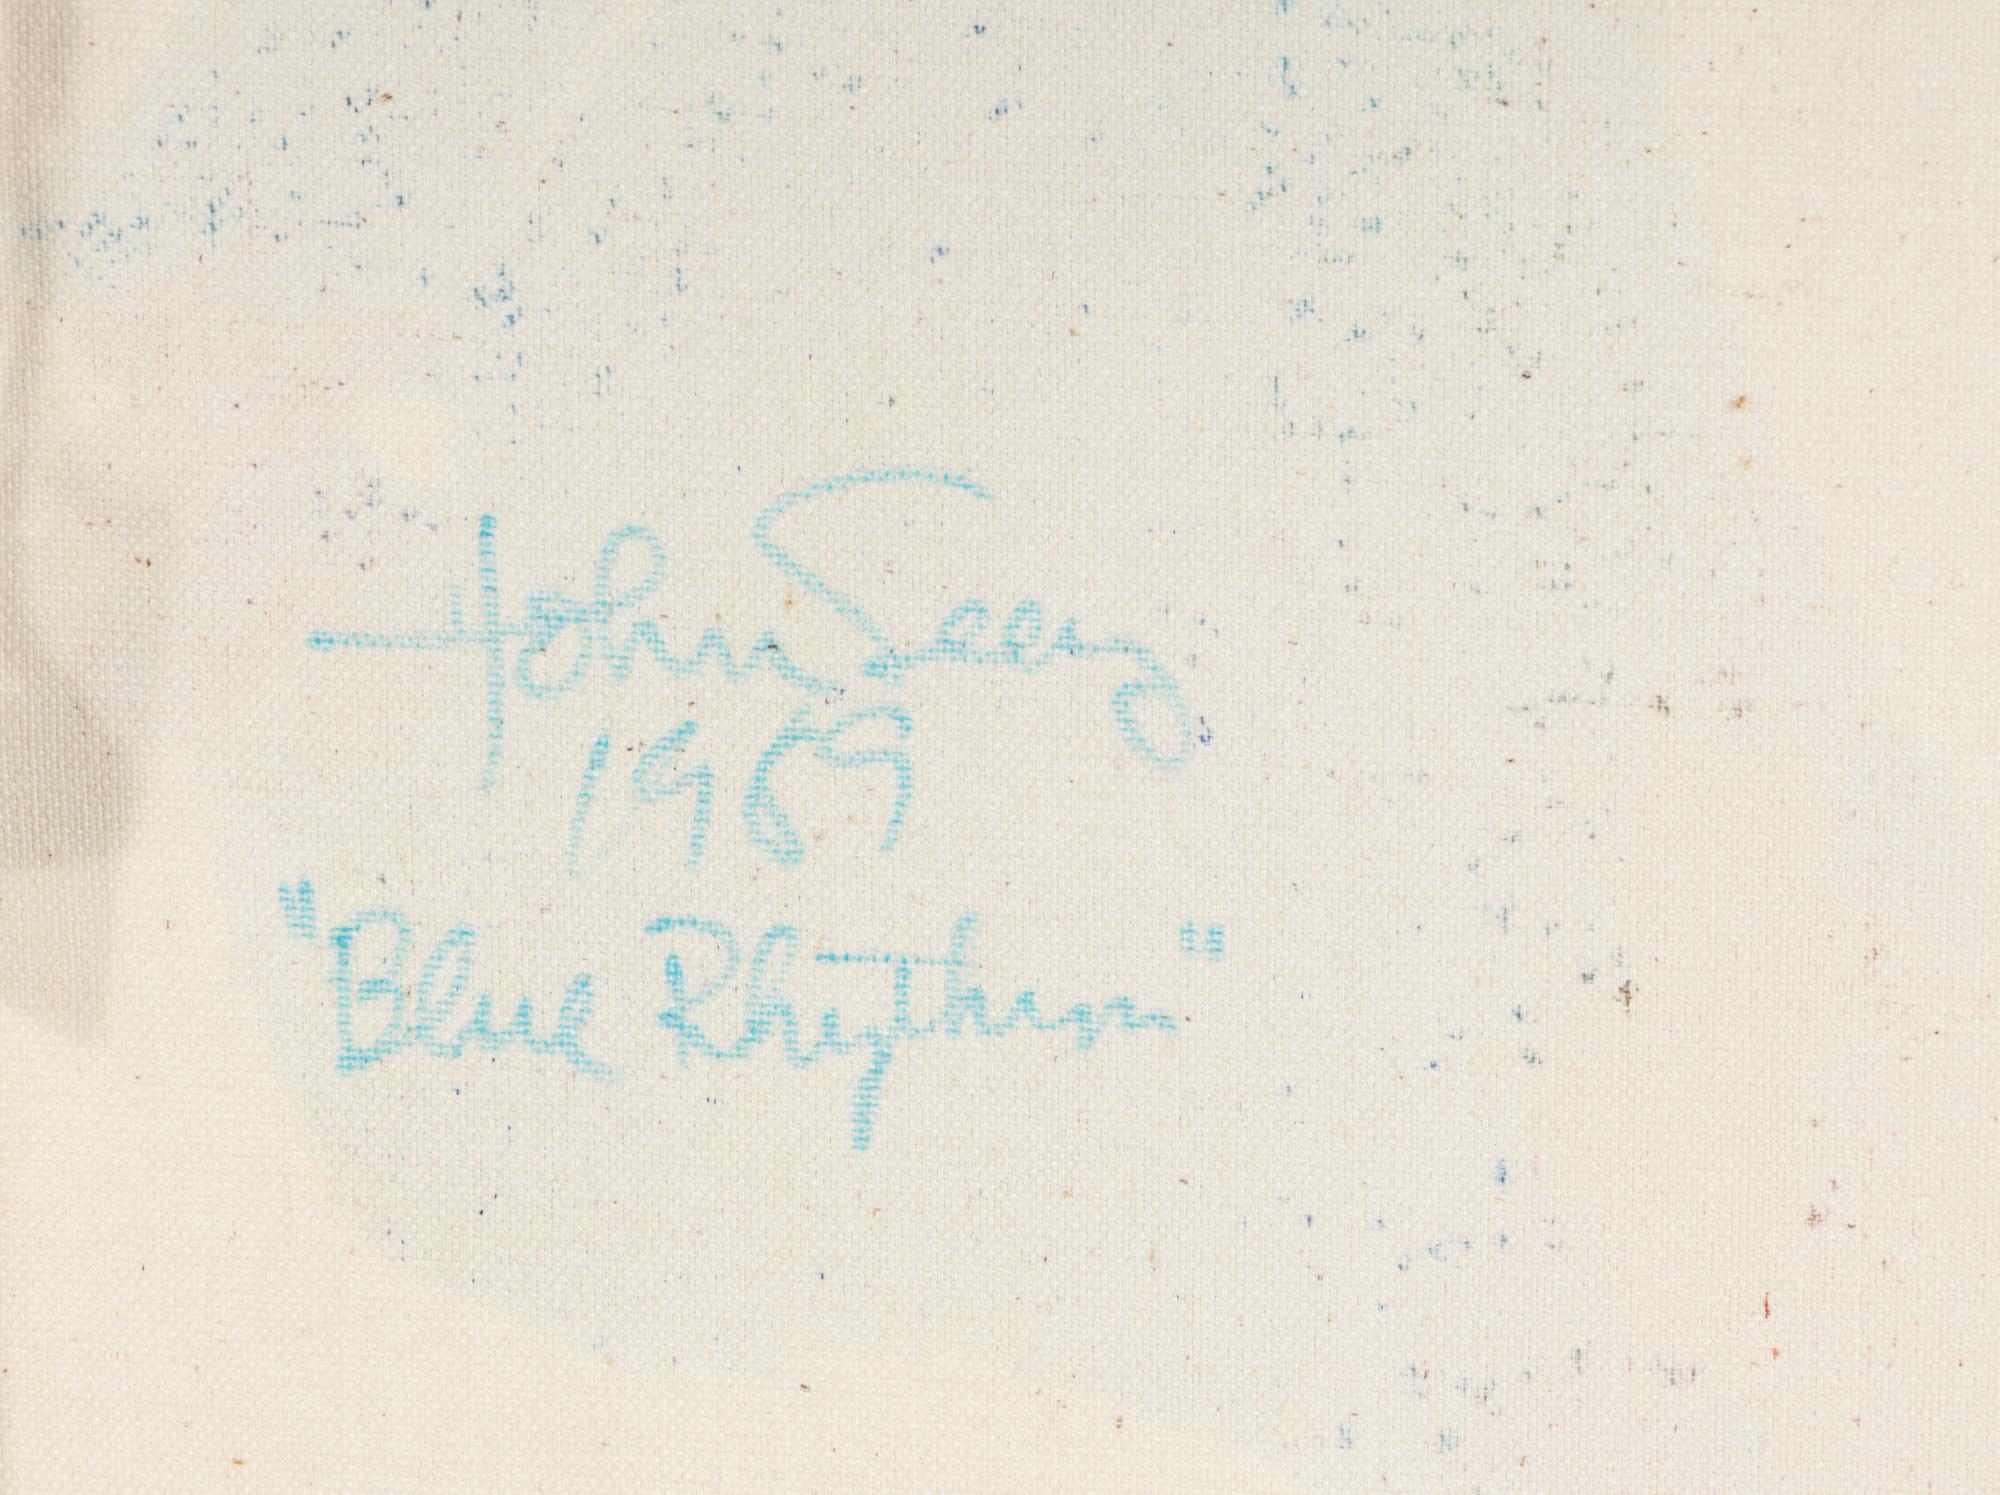 John Seery
1969
"Blue Rhythm"